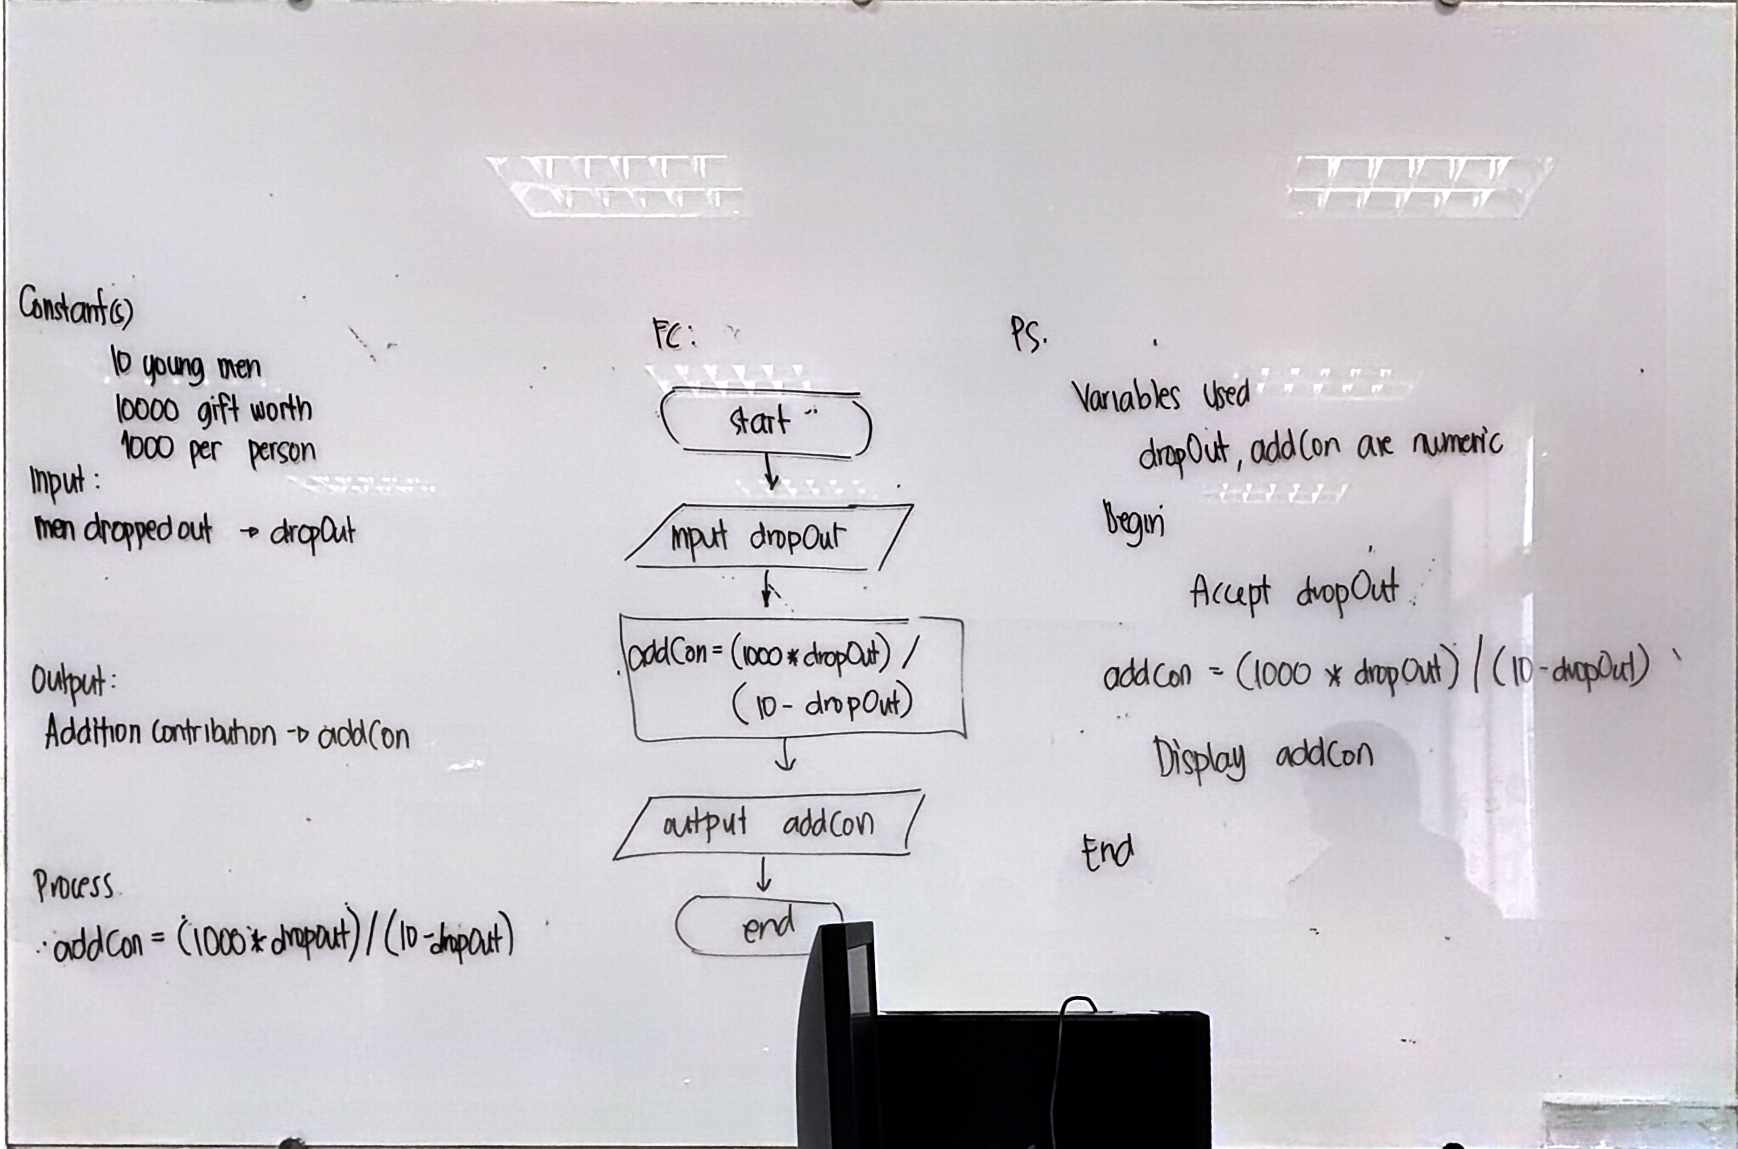 Constant(s)
10 young men
10000 gift worth
1000 per person
Input:
men dropped out → dropOut
Output:
Addition contribution → addCon
Process
∴ addCon = (1000 * dropout) / (10 - dropOut)
FC:
start
Input dropOut
addCon = (1000 * dropOut) /
(10 - dropOut)
output addCon
end
PS.
Variables used
dropOut, addCon are numeric
Begin
Accept dropOut
addCon = (1000 * dropOut) / (10 - dropOut)
Display addCon
End